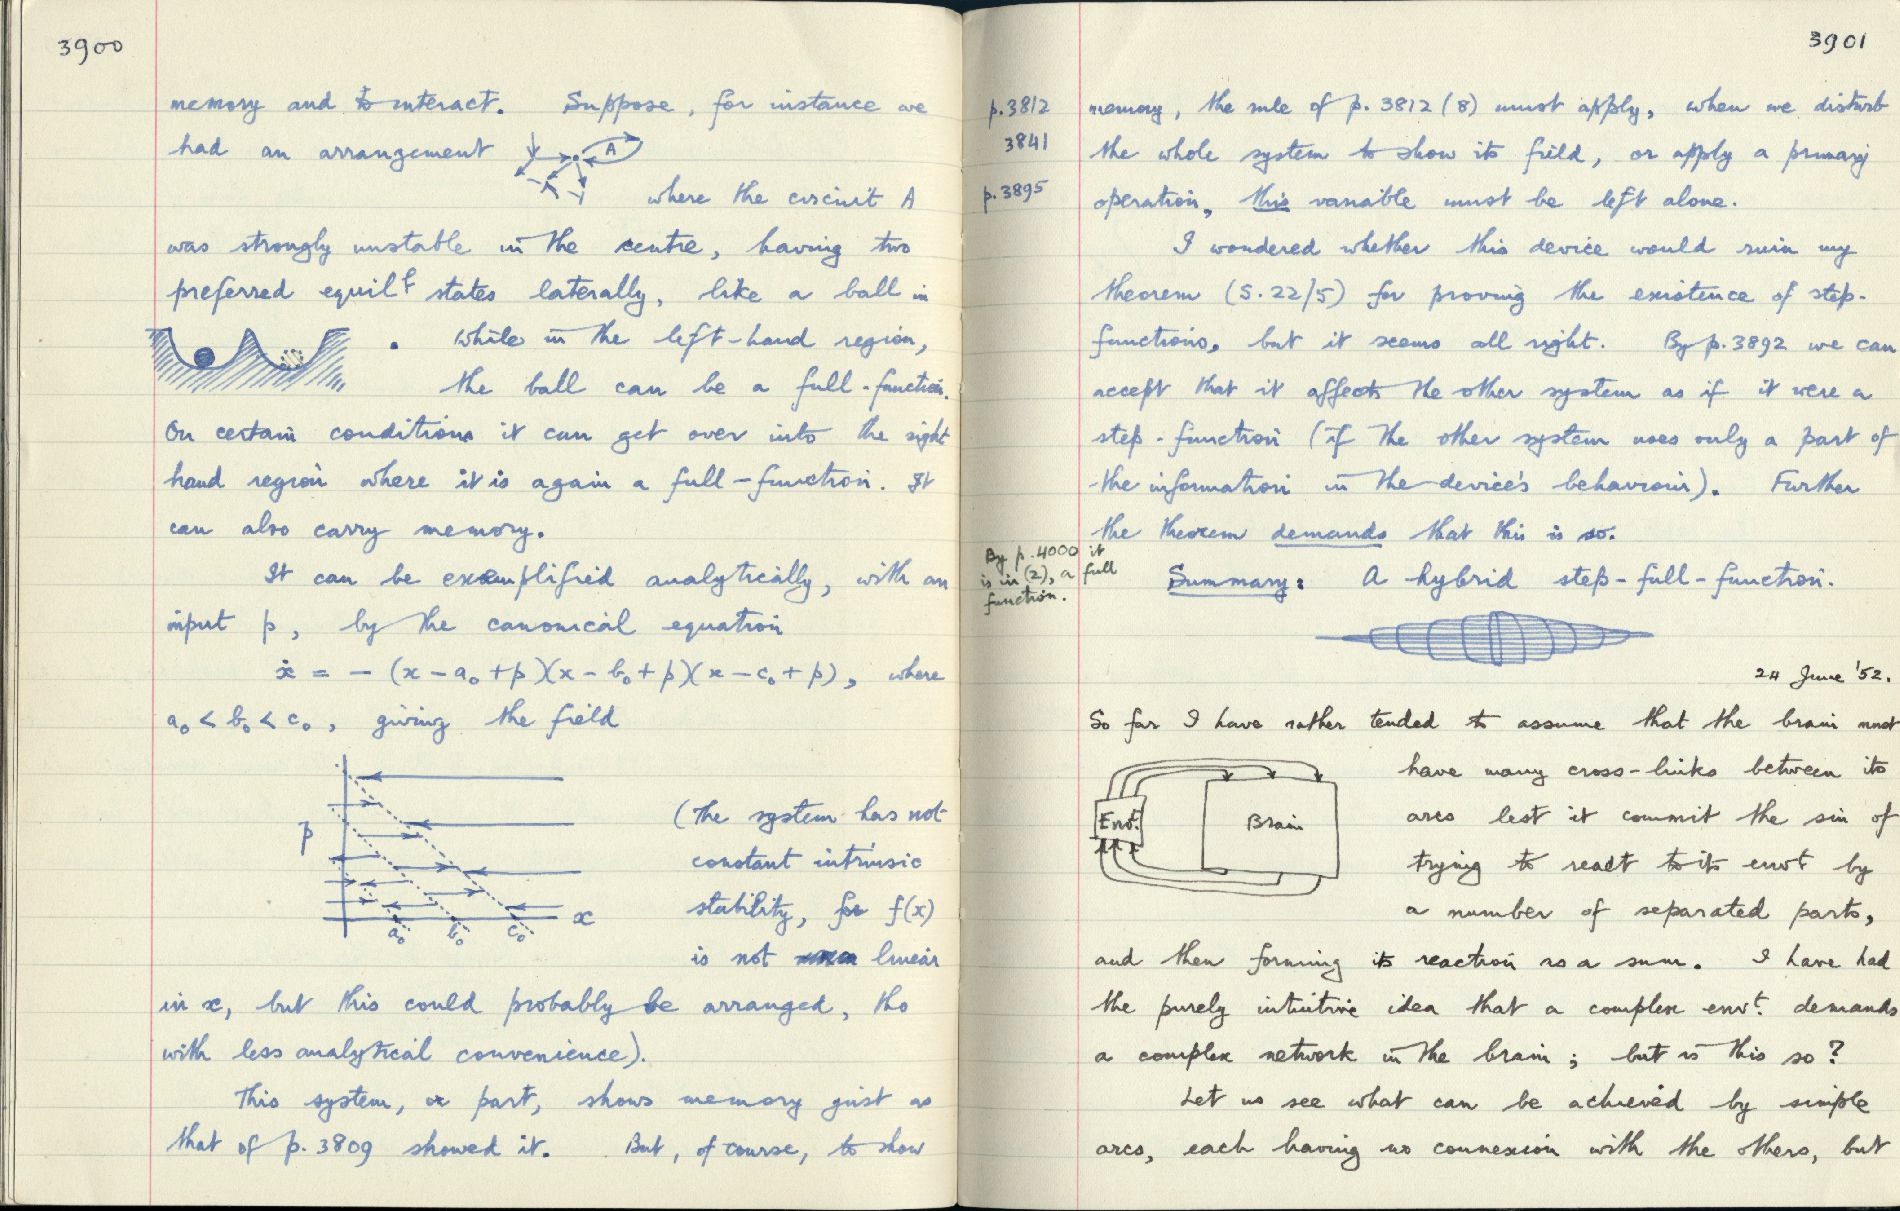 3900
memory and to interact. Suppose, for instance we
had an arrangement
A
where the circuit A
was strongly unstable in the centre, having two
preferred equil.^t states laterally, like a ball in
. While in the left-hand region,
the ball can be a full-function.
On certain conditions it can get over into the right
hand region where it is again a full-function. It
can also carry memory.
It can be exemplified analytically, with an
input p, by the canonical equation
ẋ = - (x - a₀ + p)(x - b₀ + p)(x - c₀ + p), where
a₀ < b₀ < c₀, giving the field
p
x
a₀ b₀ c₀
(The system has not
constant intrinsic
stability, for f(x)
is not linear
in x, but this could probably be arranged, tho
with less analytical convenience).
This system, or part, shows memory just as
that of p. 3809 showed it. But, of course, to show
3901
p.3812
3841
p.3895
memory, the rule of p. 3812 (8) must apply, when we disturb
the whole system to show its field, or apply a primary
operation, this variable must be left alone.
I wondered whether this device would ruin my
theorem (S. 22/5) for proving the existence of step-
functions, but it seems all right. By p. 3892 we can
accept that it affects the other system as if it were a
step-function (if the other system uses only a part of
the information in the device's behaviour). Further
the theorem demands that this is so.
By p. 4000 it
is in (2), a full
function.
Summary: A hybrid step-full-function.
24 June '52.
So far I have rather tended to assume that the brain must
have many cross-links between its
arcs lest it commit the sin of
trying to react to its env^t by
a number of separated parts,
Env^t.
Brain
and then forming its reaction as a sum. I have had
the purely intuitive idea that a complex env^t. demands
a complex network in the brain; but is this so?
Let us see what can be achieved by simple
arcs, each having no connexion with the others, but